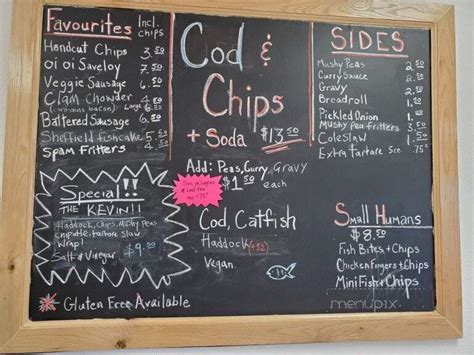 Favourites Incl. chips
Handcut Chips 3.50
oi oi Saveloy 7.50
Veggie Sausage 6.50
Clam Chowder 4.50
(contains bacon) Large 6.50
Battered Sausage
Sheffield fishcake 5.50
Spam Fritters 4.50
Special!!
THE KEVIN!!
Haddock, Chips, Mushy Peas
chipotle, tartare slaw
Wrap!
Salt & Vinegar $9.50
* Gluten Free Available
Cod &
Chips
+ Soda $13.50
Add: Peas, Curry, Gravy
$1.50 each
Cod, Catfish
Haddock (+$2)
Vegan.
SIDES
Mushy Peas 2.50
Curry Sauce 2.50
Gravy 2.50
Breadroll
Pickled Onion 1.50
Mushy pea fritters 3.50
Coleslaw 1.50
Extra Tartare Sce. .75¢
Small Humans
$8.50
Fish Bites + Chips
Chicken Fingers + Chips
Mini Fish + Chips
menupix